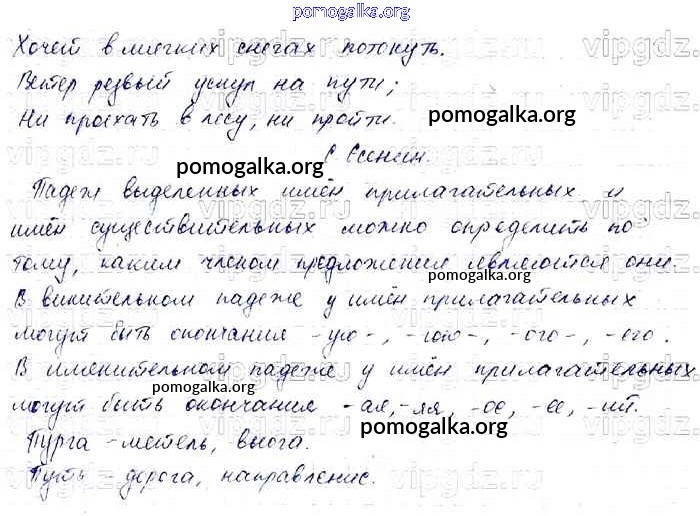 pomogalka.org
Хочет в мягких снегах потонуть.
Ветер резвый уснул на пути;
Ни проехать в лесу, ни пройти.
pomogalka.org
С. Есенин.
pomogalka.org
Падеж выделенных имён прилагательных и
имён существительных можно определить по
тому, каким членом предложения являются они.
pomogalka.org
В винительном падеже у имён прилагательных
могут быть окончания -ую-, -юю-, -ого-, -его.
В именительном падеже у имён прилагательных
pomogalka.org
могут быть окончания -ая, -яя, -ое, -ее, -ий.
pomogalka.org
Пурга - метель, вьюга.
Путь - дорога, направление.
vipgdz.ru